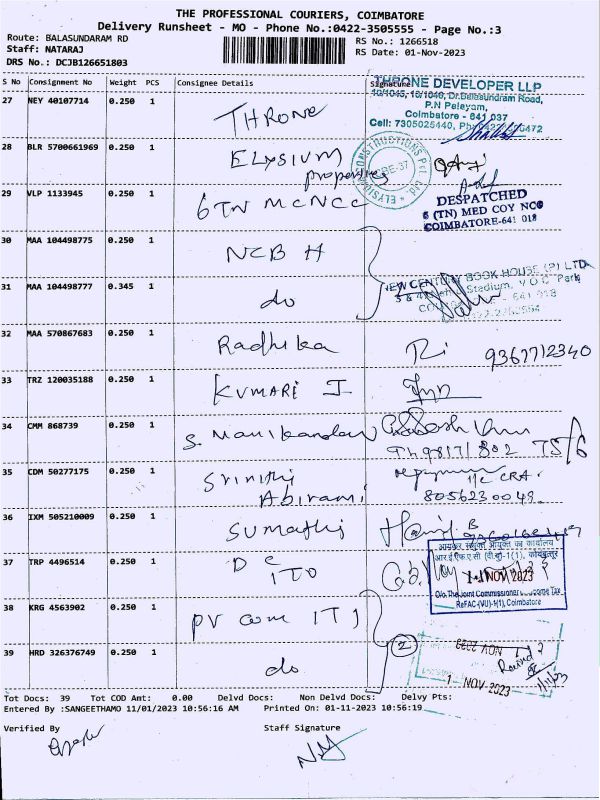 THE PROFESSIONAL COURIERS, COIMBATORE
Delivery Runsheet - MO - Phone No.:0422-3505555 - Page No.:3
Route: BALASUNDARAM RD
RS No.: 1266518
Staff: NATARAJ
RS Date: 01-Nov-2023
DRS No.: DCJB126651803
S No Consignment No Weight PCS Consignee Details Signature
THRONE DEVELOPER LLP
Dr.Balasundram Road,
P.N Palayam,
Coimbatore - 641 037
Cell: 7305025440,
27 NEY 40107714 0.250 1 THRONE
28 BLR 5700661969 0.250 1 ELYSIUM
properties
29 VLP 1133945 0.250 1 6TN MCNCC
DESPATCHED
6 (TN) MED COY NCC
COIMBATORE-641 018
30 MAA 104498775 0.250 1 NCB H
31 MAA 104498777 0.345 1 do
NEW CENTURY BOOK HOUSE (P) LTD
Stadium, V O C Park
641 018
32 MAA 570867683 0.250 1 Radhika 9367712340
33 TRZ 120035188 0.250 1 KUMARI J
34 CMM 868739 0.250 1 S. Manikandan
35 CDM 50277175 0.250 1 Srinithi
Abirami 8056230049
36 IXM 505210009 0.250 1 Sumathi
37 TRP 4496514 0.250 1 DC
ITO
आयकर संयुक्त आयुक्त का कार्यालय
NOV 2023
O/o. The Joint Commissioner of Income Tax
ReFAC-(VU)-1(1), Coimbatore
38 KRG 4563902 0.250 1 PV com IT 1
39 HRD 326376749 0.250 1 do
2
NOV 2023
1 NOV 2023
1/11/23
Tot Docs: 39 Tot COD Amt: 0.00 Delvd Docs: Non Delvd Docs: Delvy Pts:
Entered By :SANGEETHAMO 11/01/2023 10:56:16 AM Printed On: 01-11-2023 10:56:19
Verified By Staff Signature